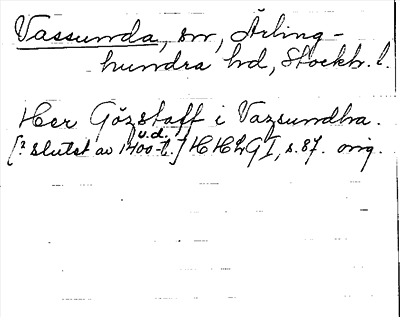 Vassunda, sn, Ärling-
hundra hd, Stockh. l.
Her Gözstaff i Vazsundha.
u.d.
[? slutet av 1400-t.] HH2G I, s. 87. orig.